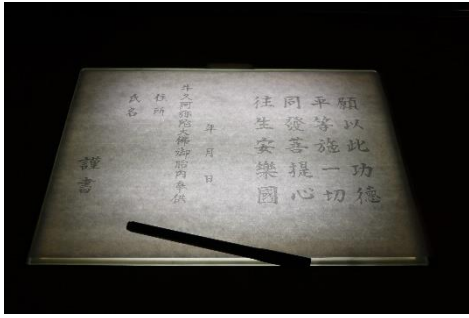 願以此功徳
平等施一切
同發菩提心
往生安樂國
年 月 日
牛久阿弥陀大佛御胎内奉供
住所
氏名
謹書